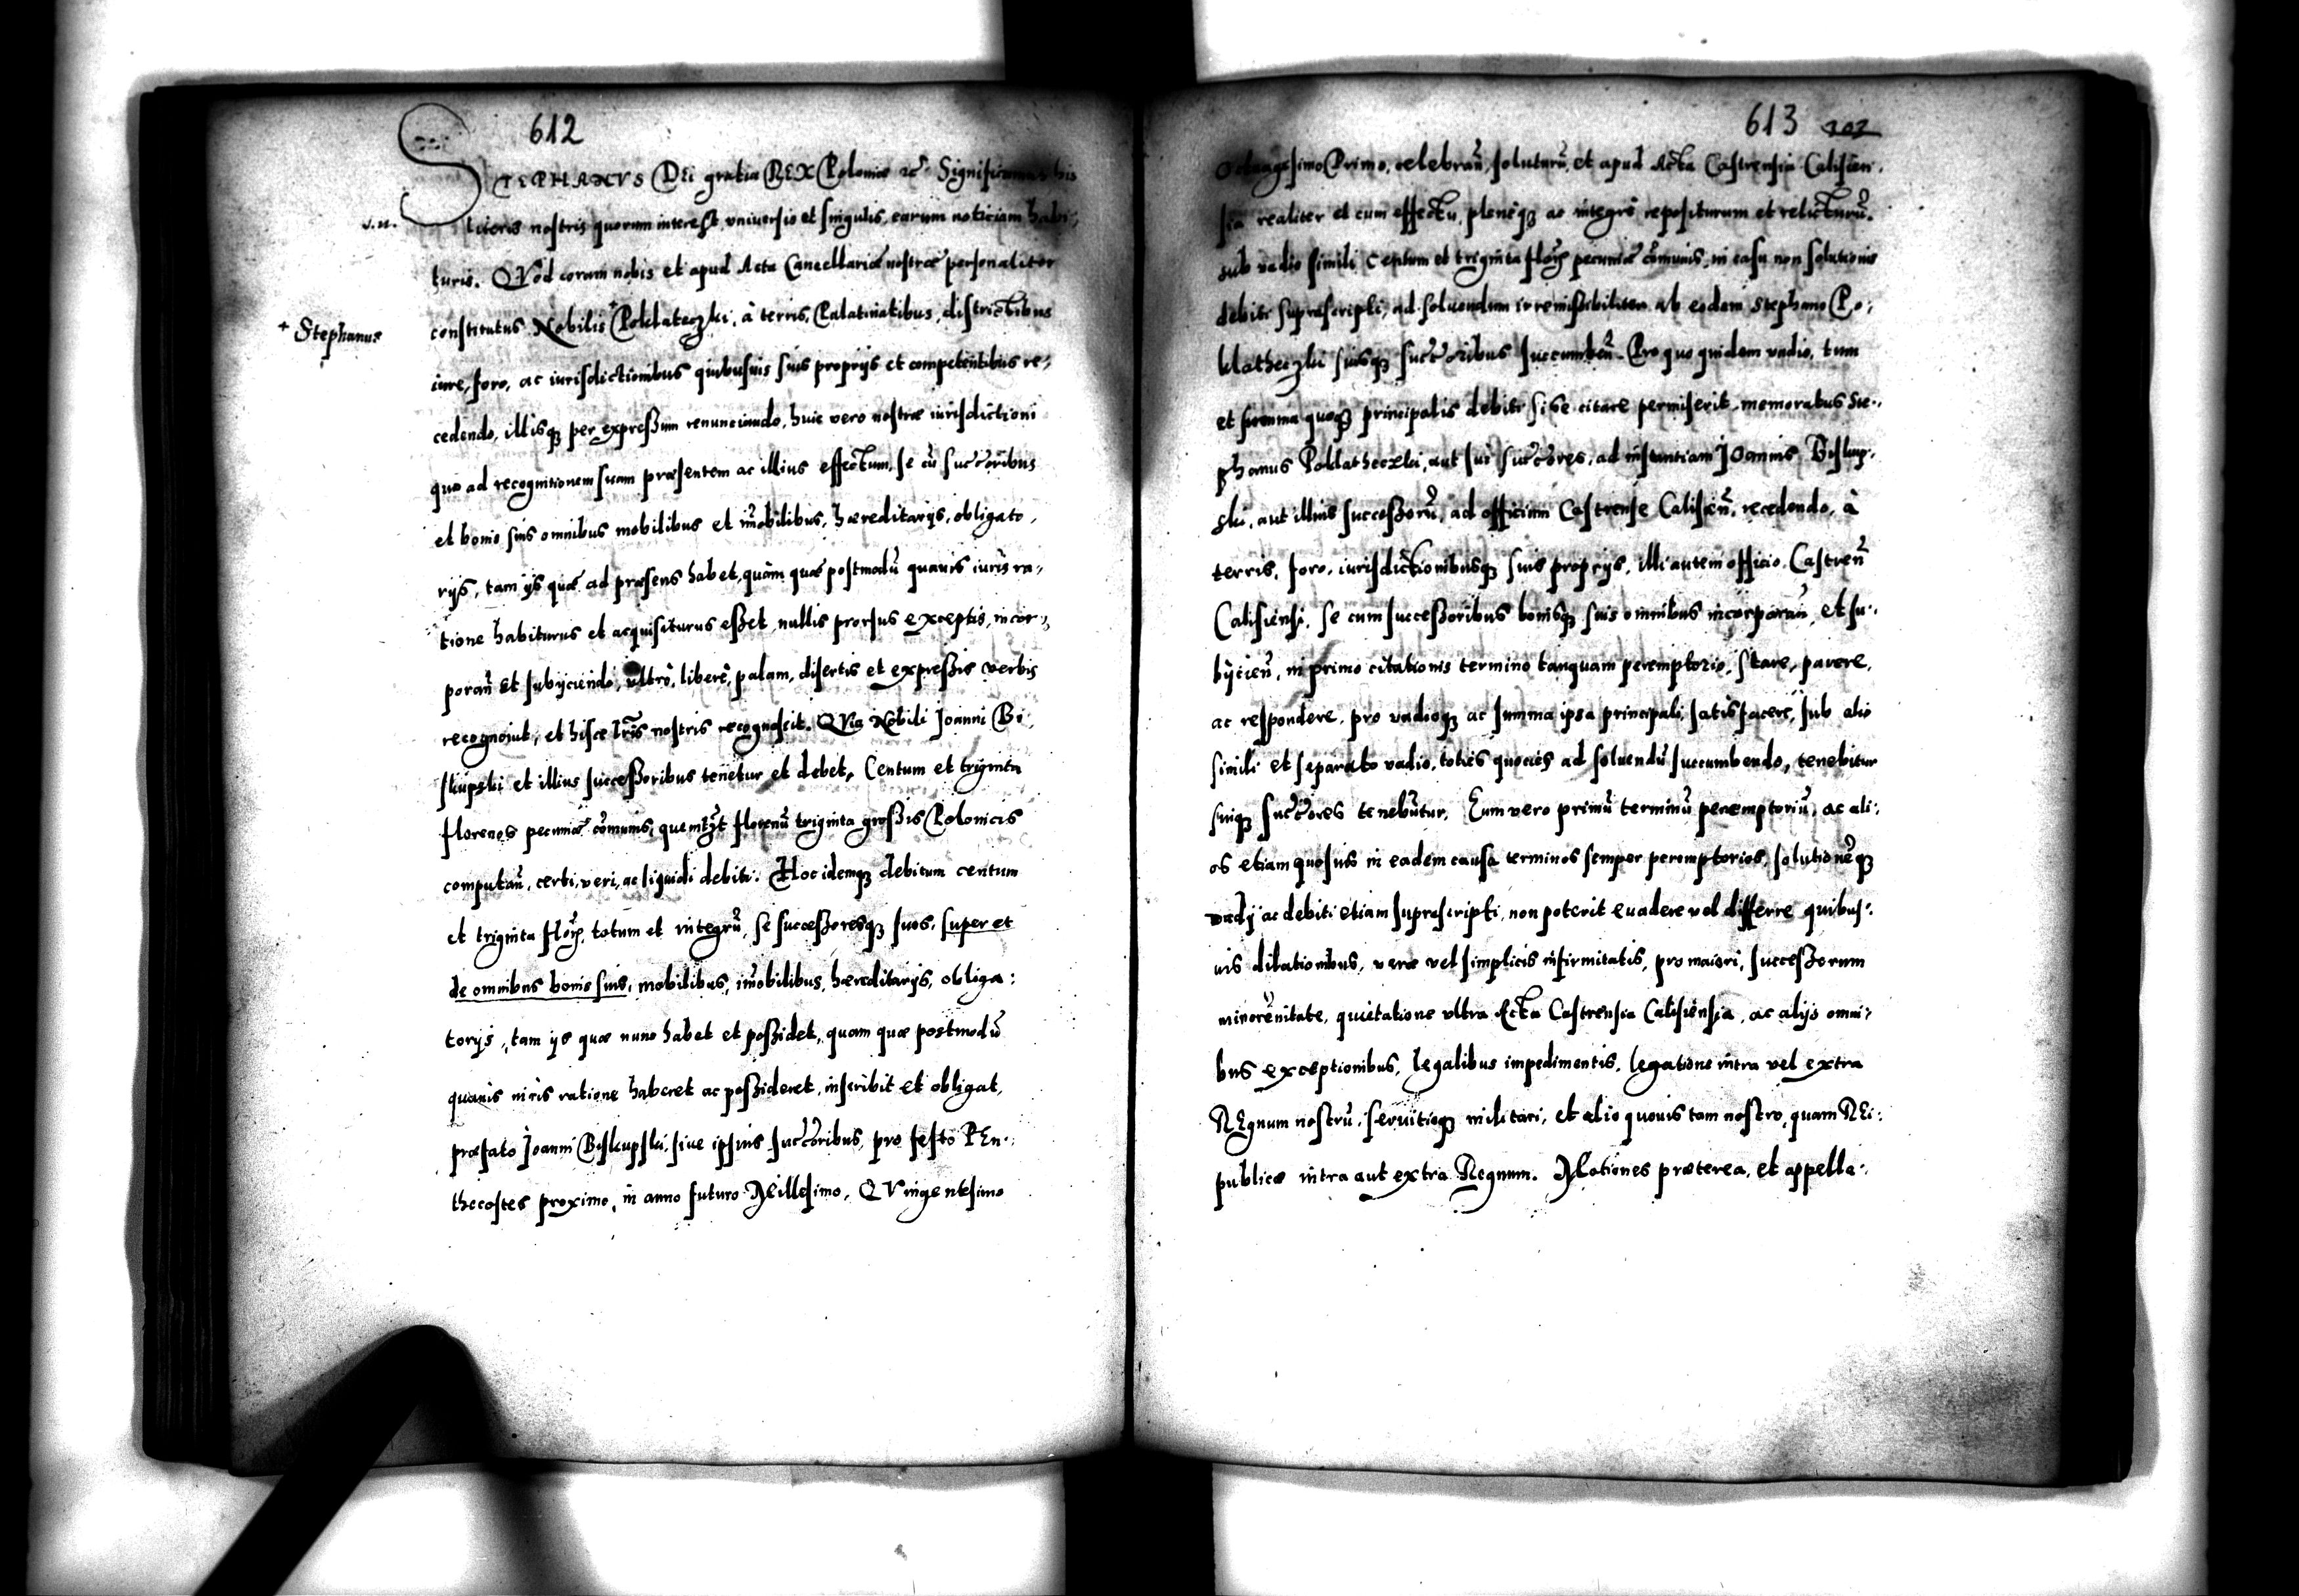 612
STEPHANVS DEi gratia REX Poloniæ etc̃ Significamus his
s.n.
literis nostris quorum interest, vniuersis et singulis, earum noticiam habi-
turis. QVod coram nobis et apud Acta Cancellariæ nostræ personaliter
+ Stephanus
constitutus Nobilis + Poklateczki, à terris, Palatinatibus, districtibus
iure, foro, ac iurisdictionibus quibusuis suis proprijs et competentibus re-
cedendo, illisq3 per expreſsum renunciando, huic vero nostræ iurisdictioni
quo ad recognitionem suam præsentem ac illius effectum, se cũ suctoribus
et bonis suis omnibus mobilibus et im̃obilibus, hæreditarijs, obligato,
rijs, tam ijs quæ ad præsens habet, quàm quæ postmodũ quauis iuris ra-
tione habiturus et acquisiturus eſset, nullis prorsus exceptis, incor-
porañ et subijciendo, vltrò, liberè, palam, disertis et expreſsis verbis
recognouit, et hisce lr̃is nostris recognoscit. QVia Nobili Joanni Bi,
skupski et illius succeſsoribus tenetur et debet, Centum et triginta
florenos pecuniæ com̃unis, quemlȳt florenũ triginta groſsis Polonicis
computañ, certi, veri, ac liquidi debiti. Hoc idemq3 debitum centum
et triginta flor̃, totum et integrũ, se succeſsoresq3 suos, super et
de omnibus bonis suis, mobilibus, im̃obilibus, hæreditarijs, obliga:
torijs, tam ijs quæ nunc habet et poſsidet, quam quæ postmodũ
quauis iuris ratione haberet ac poſsideret, inscribit et obligat,
præfato Joanni Biskupski, siue ipsius suctoribus, pro festo PEn-
thecostes proximo, in anno futuro Millesimo, QVingentesimo
613 202
Octuagesimo Primo, celebrañ, soluturũ, et apud Acta Castrensia Calisien.
sia realiter et cum effectu, plenèq3 ac integrè repositurum et relicturũ.
sub vadio simili Centum et triginta flor̃ pecuniæ com̃unis, in casu non solutionis
debiti suprascripti, ad soluendum irremiſsibiliter ab eodem Stephano Po,
klatheczki suisq3 suctoribus succumbeñ. Pro quo quidem vadio, tum
et summa quoq3 principalis debiti si se citare permiserit, memoratus Ste-
phanus Poklatheczki, aut sui suctores, ad instantiam JOannis Biskup-
ski, aut illius succeſsorũ, ad officium Castrense Calisień, recedendo, à
terris, foro, iurisdictionibusq3 suis proprijs, illi autem officio Castreñ
Calisiensi, se cum succeſsoribus bonisq3 suis omnibus incorporañ, et su-
bijcieñ, in primo citationis termino tanquam peremptorio, stare, parere,
ac respondere, pro vadioq3 ac summa ipsa principali, satisfacere, sub alio
simili et separato vadio, toties quoties ad soluendũ succumbendo, tenebitur
suiq3 suctores tenebũtur. Eum vero primũ terminũ peremptoriũ, ac ali:
os etiam quosuis in eadem causa terminos semper peremptorios, solutionẽq3
vadij ac debiti etiam suprascripti, non poterit euadere vel differre quibus:
uis dilationibus, veræ vel simplicis infirmitatis, pro maiori, succeſsorum
minorẽnitate, quietatione vltra Acta Castrensia Calisiensia, ac alijs omni-
bus exceptionibus, legalibus impedimentis, legatione intra vel extra
REgnum nostrũ, seruitioq3 militari, et alio quouis tam nostro, quam REi:
publicæ intra aut extra Regnum. MOtiones præterea, et appella-